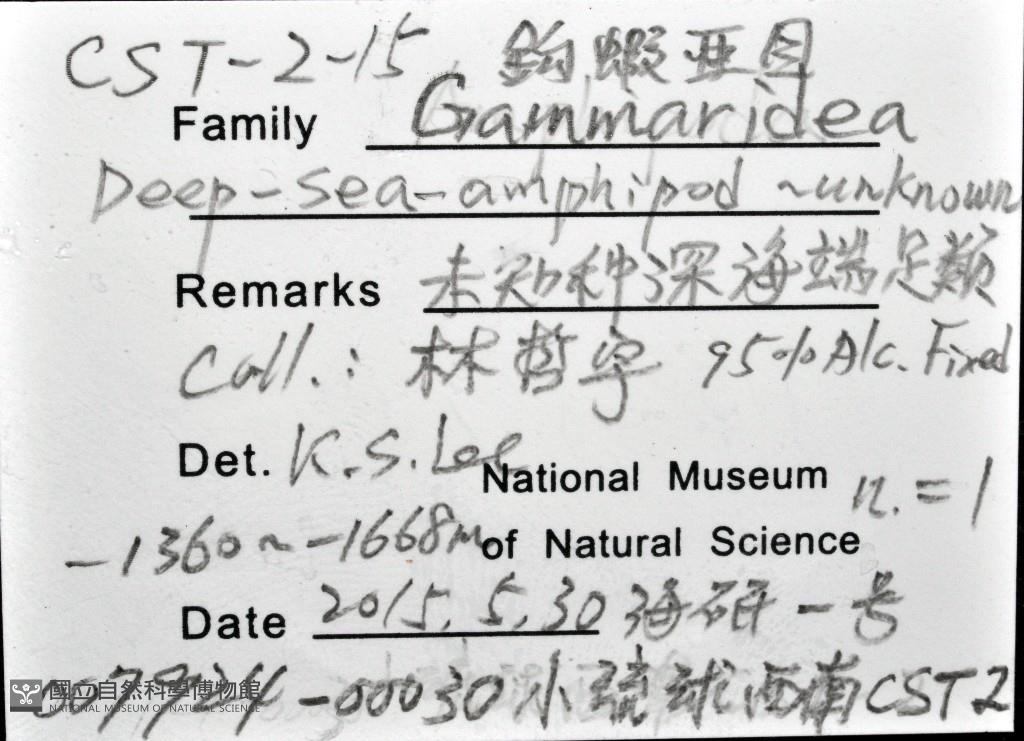 CST-2-15 鉤蝦亜目
Family Gammaridea
Deep-sea-amphipod ~unknown
Remarks 未知种深海端足類
Coll.: 林哲宇 95% Alc. Fixed
Det. K.S. Lee
National Museum n.=1
-1360~-1668m of Natural Science
Date 2015.5.30 海研一号
-00030 小琉球西南CST2
國立自然科學博物館
NATIONAL MUSEUM OF NATURAL SCIENCE